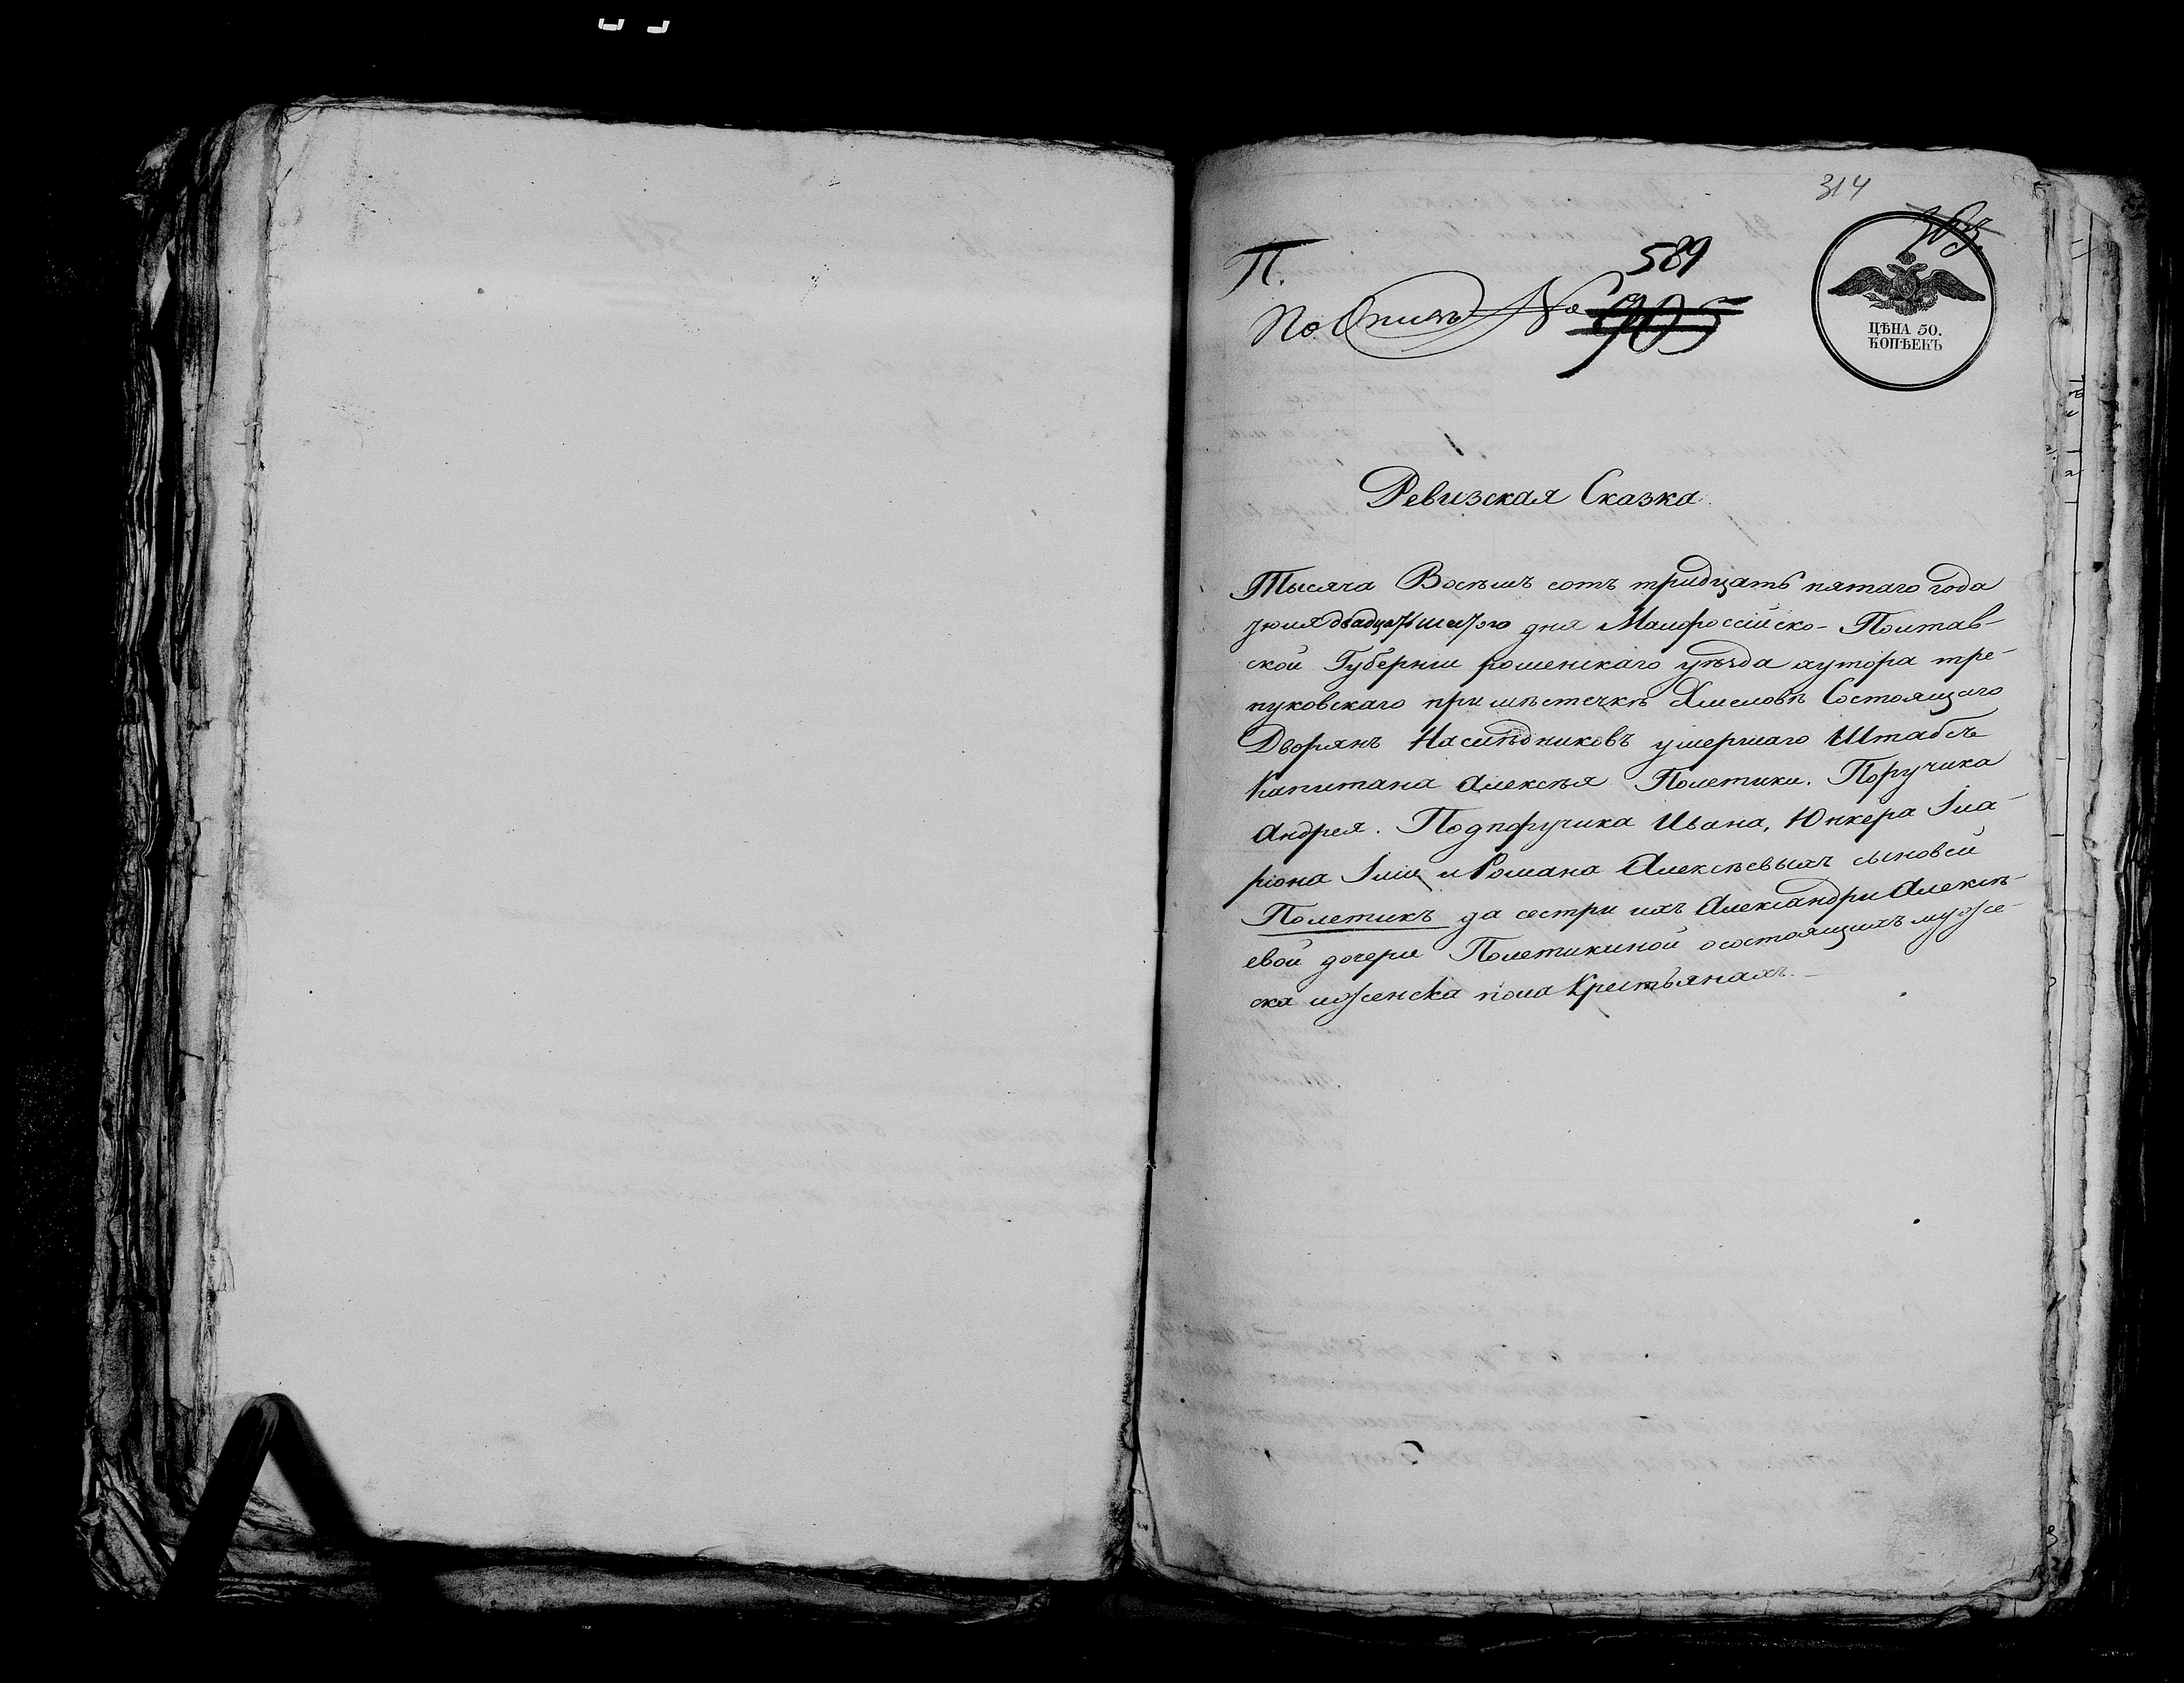 314
П.
589
По Описѣ № 903
ЦѢНА 50.
КОПѢЕКЪ
Ревизская Сказка
Тысяча Восемъ сотъ тридцать пятаго года
июля двадцать шестого дня Малороссійско-Полтав-
ской Губерніи роменскаго уѣзда хутора тре-
пуковскаго при мѣстечкѣ Хмеловѣ Состоящаго
Дворянъ Наслѣдниковъ умершаго Штабсъ
Капитана Алексѣя Полетики. Поручика
Андрея. Подпоручика Ивана, Юнкера Іла-
ріона Іліи и Романа Алексѣевыхъ сыновей
Полетикъ да сестри ихъ Александри Алексѣ-
евой дочери Полетикиной о состоящихъ муже-
ска и женска пола Крестьянахъ.